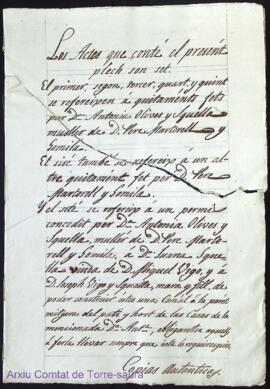 Los Actes que conté el present
plech son set.
El primer, segon, tercer, quart, y quint
se refereixen à quitaments fets
por Dª Antonia Olives y Squella
muller de D. Pere Martorell y
Somila.
El sisé també se refereix à un al-
tre quitament fet por D. Pere
Martorell y Somila.
Y el seté se refereix à un permis
concedit por Dª Antonia Olives y
Squella, muller de D. Pere Marto-
rell y Somila, à Dª Juana Sque-
lla viuda de D. Miquel Vigo, y à
D. Joseph Vigo y Squella, mare y fill, de
poder construir una Canal à la paret
mitgera del pati, y hort de las Casas de la
mencionada Dª Antª; obligantse aquells
à ferla llevar sempre que sia requirir
Copias autenticas
Arxiu Comtat de Torre-saura